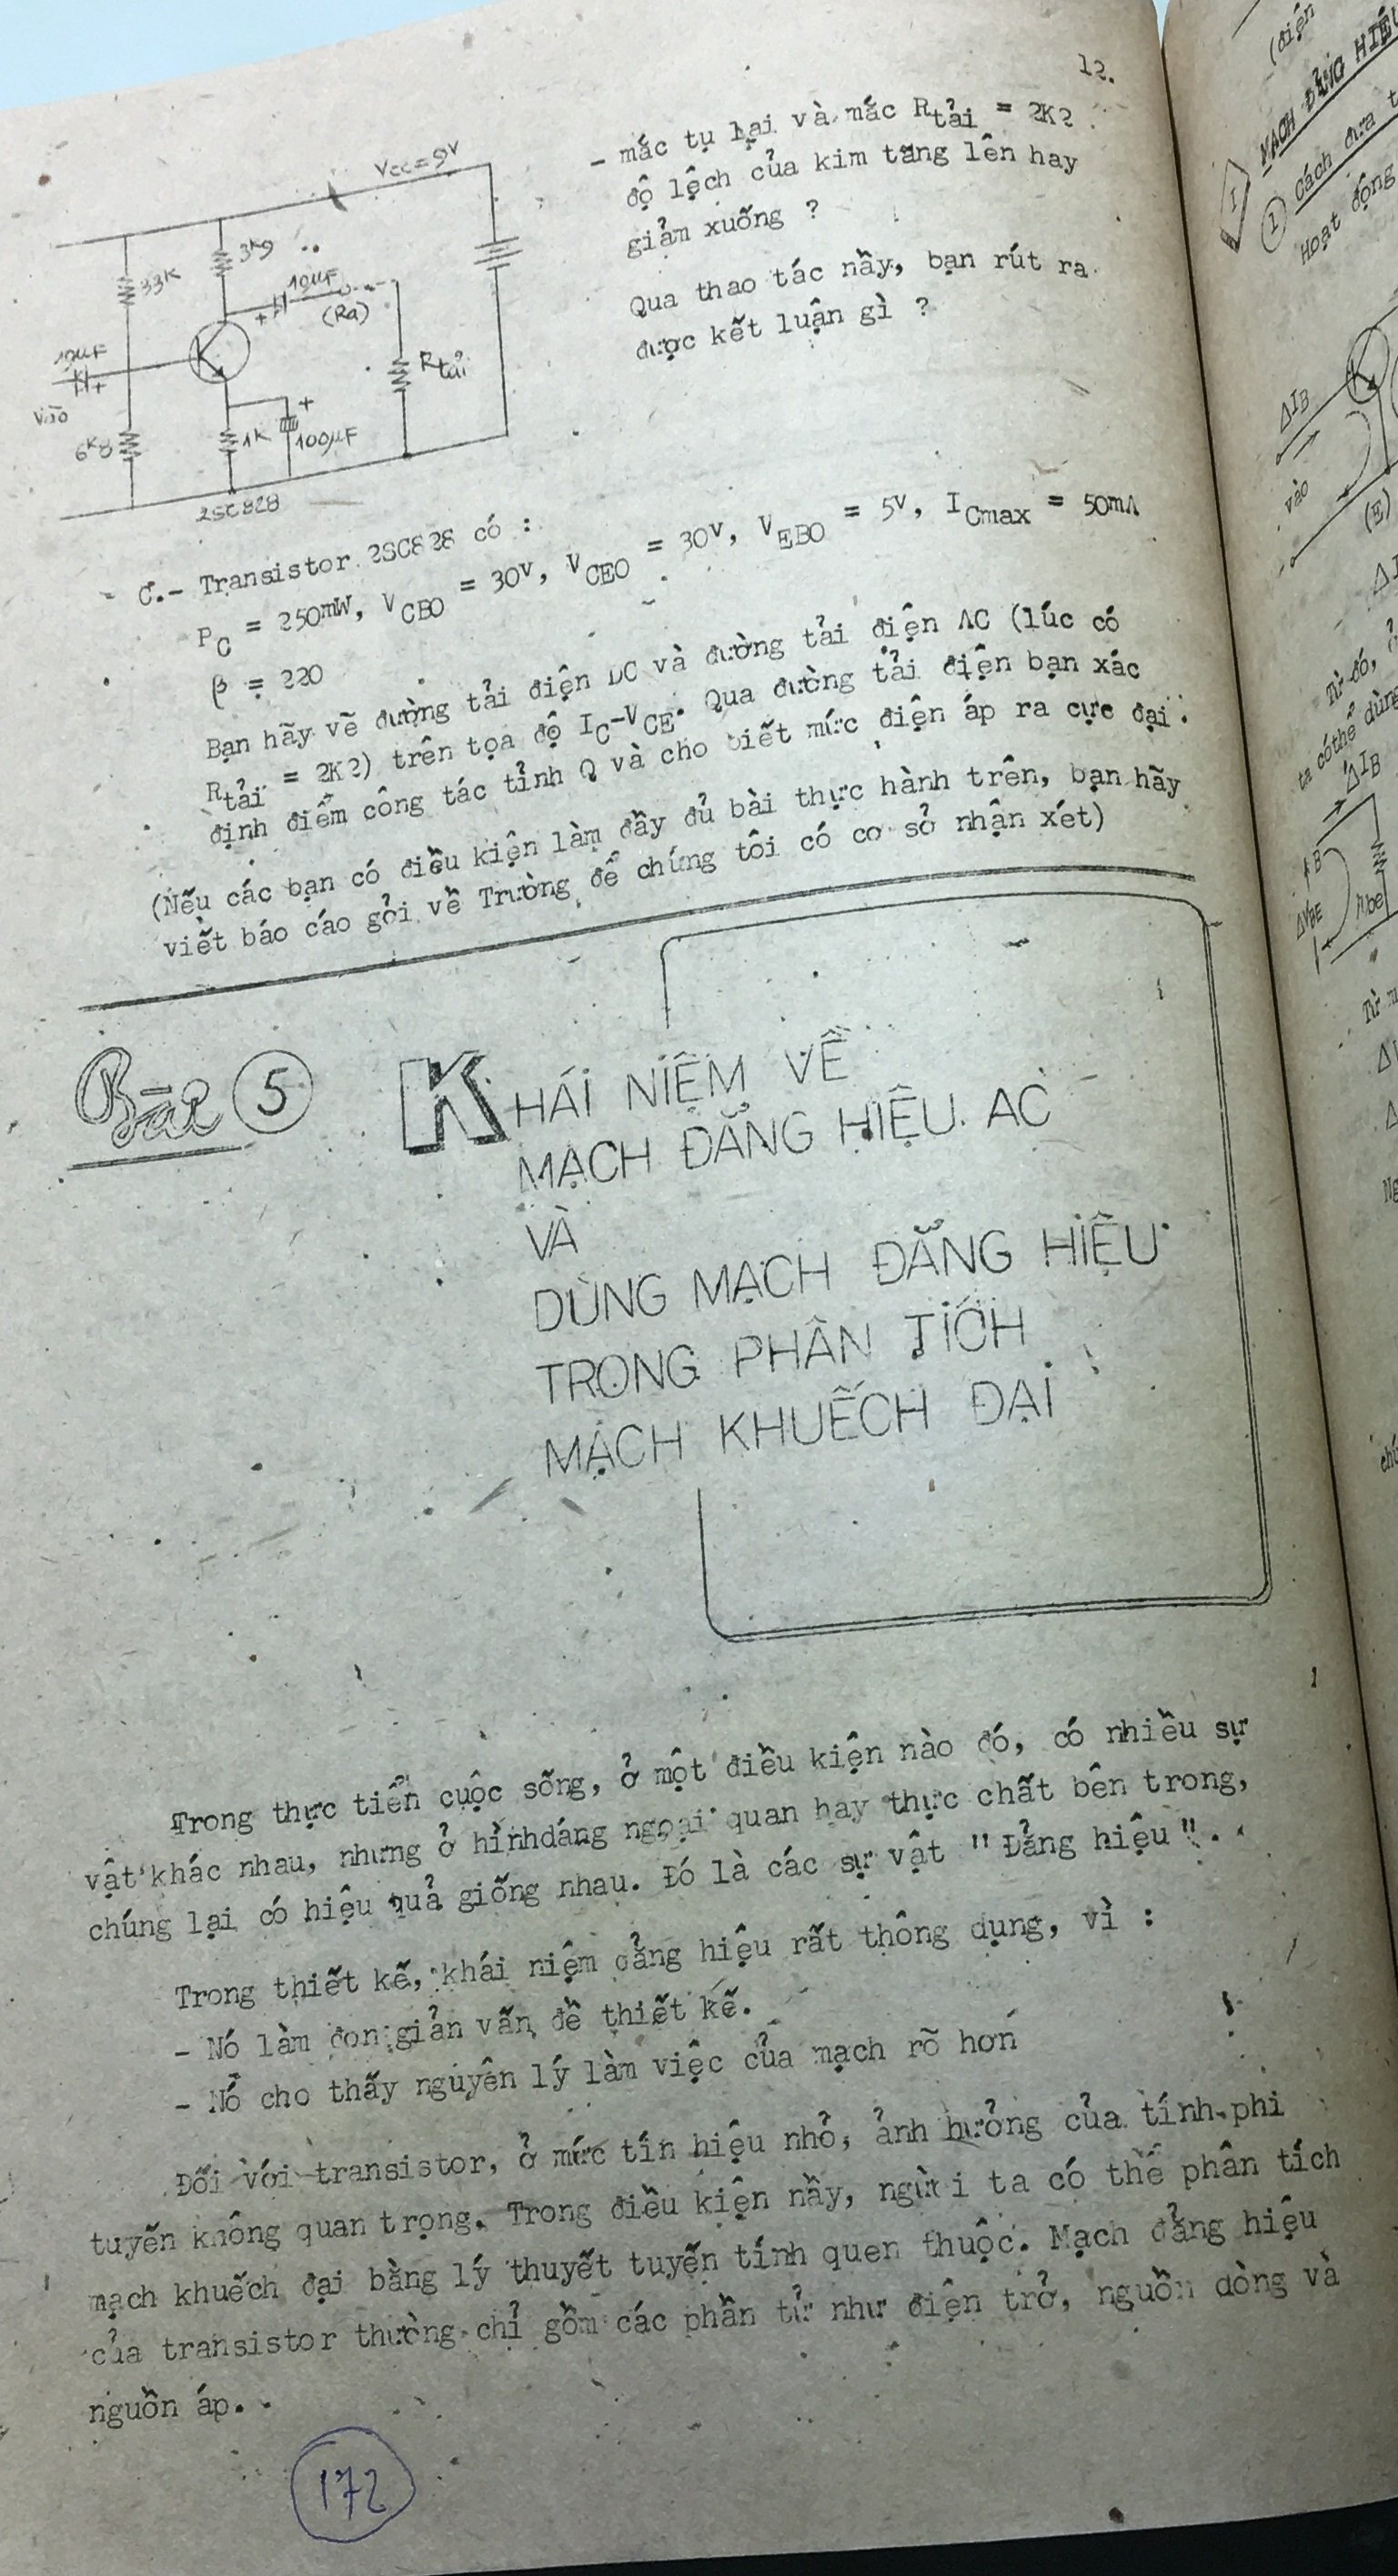 12.
- mắc tụ lại và mắc Rtải = 2K2
độ lệch của kim tăng lên hay
giảm xuống ?
Qua thao tác nầy, bạn rút ra
được kết luận gì ?
Vcc=9V
33K
3K9
10µF
(Ra)
10µF
Vào
Rtải
6K8
1K
100µF
2SC828
C.- Transistor 2SC828 có :
PC = 250mW, VCBO = 30V, VCEO = 30V, VEBO = 5V, ICmax = 50mA
β = 220
Bạn hãy vẽ đường tải điện DC và đường tải điện AC (lúc có
Rtải = 2K2) trên tọa độ IC-VCE. Qua đường tải điện bạn xác
định điểm công tác tỉnh Q và cho biết mức điện áp ra cực đại.
(Nếu các bạn có điều kiện làm đầy đủ bài thực hành trên, bạn hãy
viết báo cáo gởi về Trường để chúng tôi có cơ sở nhận xét)
Bài 5
KHÁI NIỆM VỀ
MẠCH ĐẲNG HIỆU AC
VÀ
DÙNG MẠCH ĐẲNG HIỆU
TRONG PHÂN TÍCH
MẠCH KHUẾCH ĐẠI
Trong thực tiển cuộc sống, ở một điều kiện nào đó, có nhiều sự
vật khác nhau, nhưng ở hìnhdáng ngoại quan hay thực chất bên trong,
chúng lại có hiệu quả giống nhau. Đó là các sự vật " Đẳng hiệu ".
Trong thiết kế, khái niệm đẳng hiệu rất thông dụng, vì :
- Nó làm đơn giản vấn đề thiết kế.
- Nó cho thấy nguyên lý làm việc của mạch rõ hơn
Đối với transistor, ở mức tín hiệu nhỏ, ảnh hưởng của tính phi
tuyến không quan trọng. Trong điều kiện nầy, người ta có thể phân tích
mạch khuếch đại bằng lý thuyết tuyến tính quen thuộc. Mạch đẳng hiệu
của transistor thường chỉ gồm các phần tử như điện trở, nguồn dòng và
nguồn áp.
172
(điện
I
MẠCH ĐẲNG HIỆU
1 Cách đưa
Hoạt động
ΔIB
vào
(E)
Từ đó,
ta cóthể dùng
ΔIB
B
ΔVBE
hbe
Từ